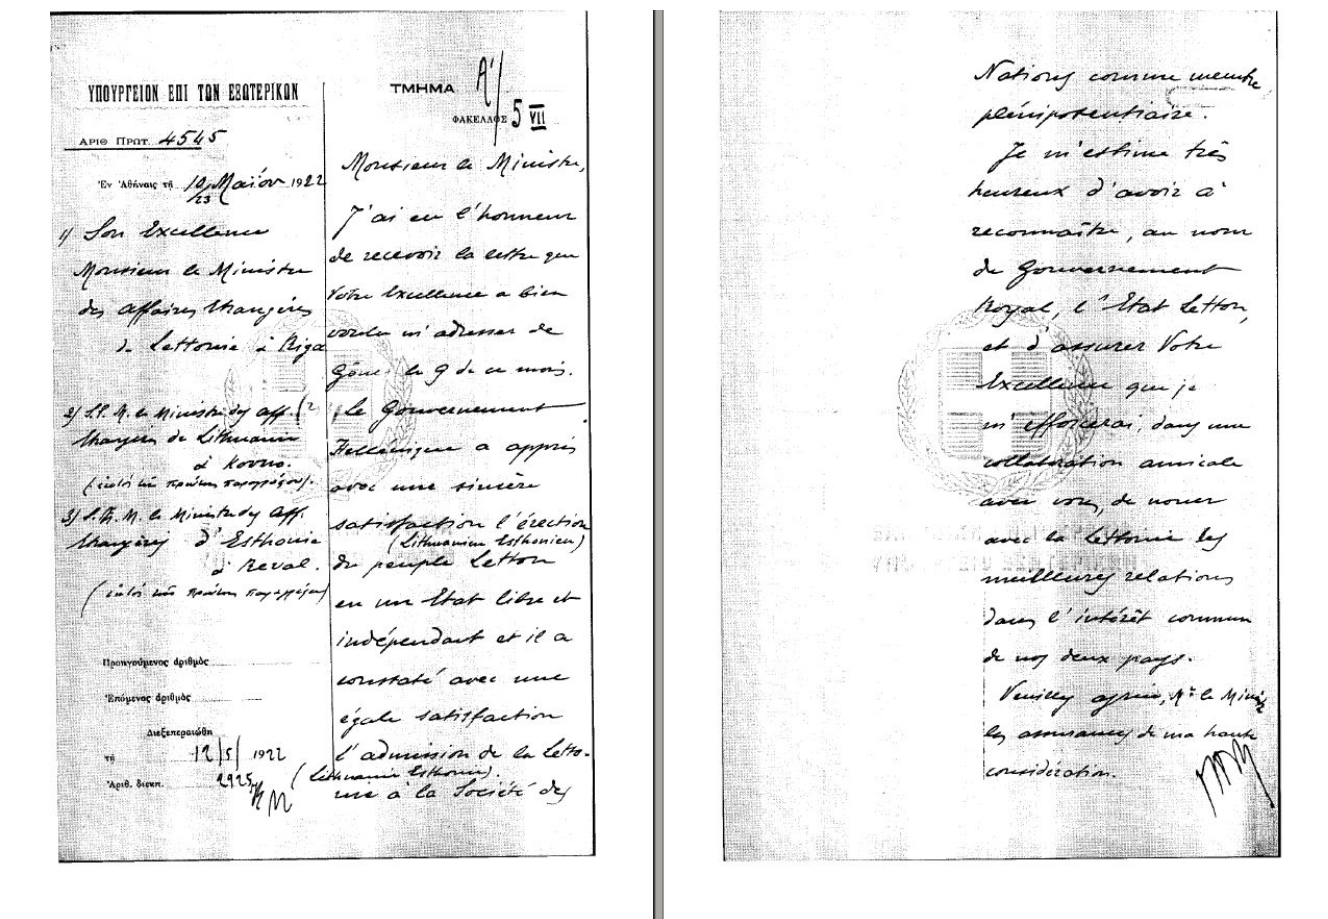 ΥΠΟΥΡΓΕΙΟΝ ΕΠΙ ΤΩΝ ΕΞΩΤΕΡΙΚΩΝ
ΑΡΙΘ ΠΡΩΤ. 4545
Ἐν Ἀθήναις τῇ 10/23 Μαΐου 1922
1) Son Excellence
Monsieur le Ministre
des Affaires Etrangères
de Lettonie à Riga
2) S.E. M. le Ministre des Aff.
Etrangères de Lithuanie
à Kovno.
(ἐκτὸς τῆς πρώτης παραγράφου).
3) S.E. M. le Ministre des Aff.
Etrangères d'Esthonie
à Reval.
(ἐκτὸς τῆς πρώτης παραγράφου)
Προηγούμενος ἀριθμὸς
Ἑπόμενος ἀριθμὸς
Διεξεπεραιώθη
τῇ 12/5/1922
Ἀριθ. διεκπ. 2925
ΤΜΗΜΑ Α'
ΦΑΚΕΛΛΟΣ 5 VII
Monsieur le Ministre,
J'ai eu l'honneur
de recevoir la lettre que
Votre Excellence a bien
voulu m'adresser de
Gênes le 9 de ce mois.
Le Gouvernement
Hellénique a appris
avec une sincère
satisfaction l'érection
(Lithuanien Esthonien)
du peuple Letton
en un Etat libre et
indépendant et il a
constaté avec une
égale satisfaction
l'admission de la Letto-
(Lithuanie Esthonie).
nie à la Société des
Nations comme membre
plénipotentiaire.
Je m'estime très
heureux d'avoir à
reconnaître, au nom
du Gouvernement
Royal, l'Etat Letton,
et d'assurer Votre
Excellence que je
m'efforcerai, dans une
collaboration amicale
avec vous, de nouer
avec la Lettonie les
meilleures relations
dans l'intérêt commun
de nos deux pays.
Veuillez agréer, Mr le Ministre
les assurances de ma haute
considération.